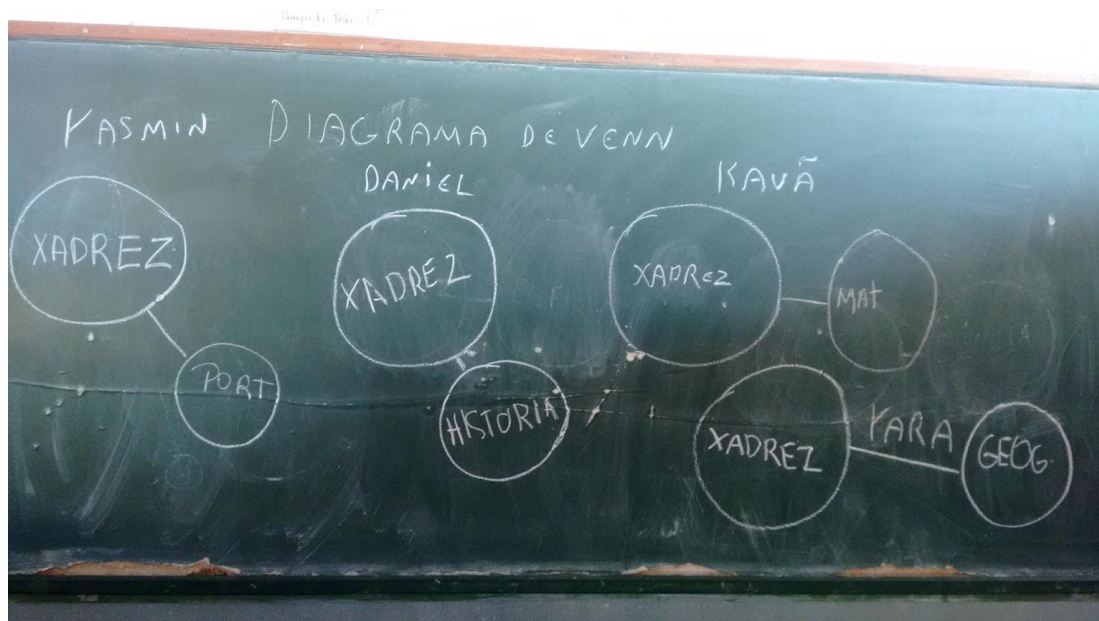 YASMIN DIAGRAMA DE VENN
DANIEL
KAUÃ
XADREZ
PORT
XADREZ
HISTÓRIA
XADREZ
MAT
XADREZ
YARA
GEOG.